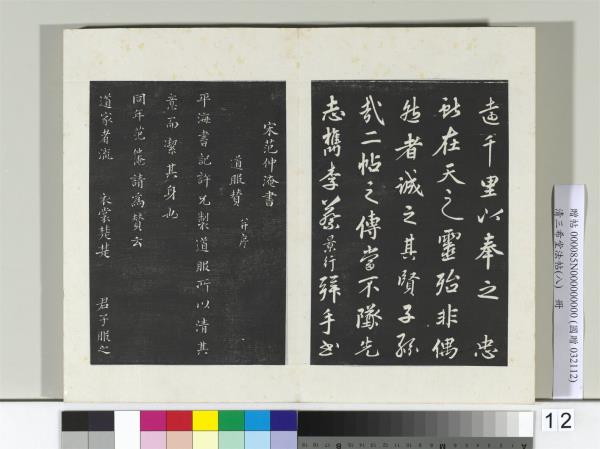 遠千里以奉之 忠
獻在天之靈殆非偶
然者誠之其賢子孫
哉二帖之傳當不墜先
志雋李蔡景行拜手書
宋范仲淹書
道服贊 并序
平海書記許兄製道服所以清其
意而潔其身也
同年范僊請爲贊云
道家者流 衣裳楚楚 君子服之
贈帖 000085N000000000 (國贈 032112)
清三希堂法帖(八) 冊
12